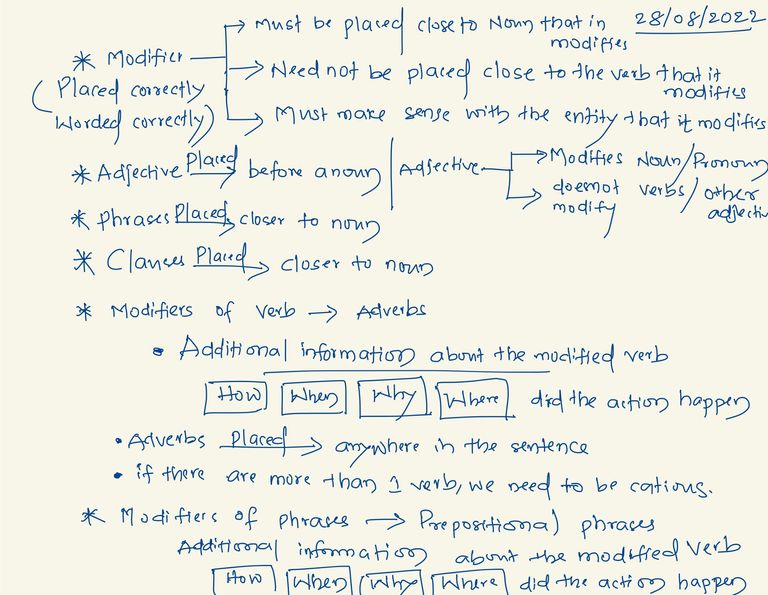 Must be placed close to Noun that in modifies
28/08/2022
* Modifier
(Placed correctly
Worded correctly)
Need not be placed close to the verb that it modifies
Must make sense with the entity that it modifies
* Adjective Placed before a noun
Adjective
Modifies Noun/Pronoun
doesnot modify verbs/other adjectiv
* Phrases Placed closer to noun
* Clauses Placed closer to noun
* Modifiers of verb → Adverbs
• Additional information about the modified verb
How When Why Where did the action happen
• Adverbs Placed anywhere in the sentence
• if there are more than 1 verb, we need to be catious.
* Modifiers of phrases → Prepositional phrases
Additional information about the modified verb
How When Why Where did the action happen